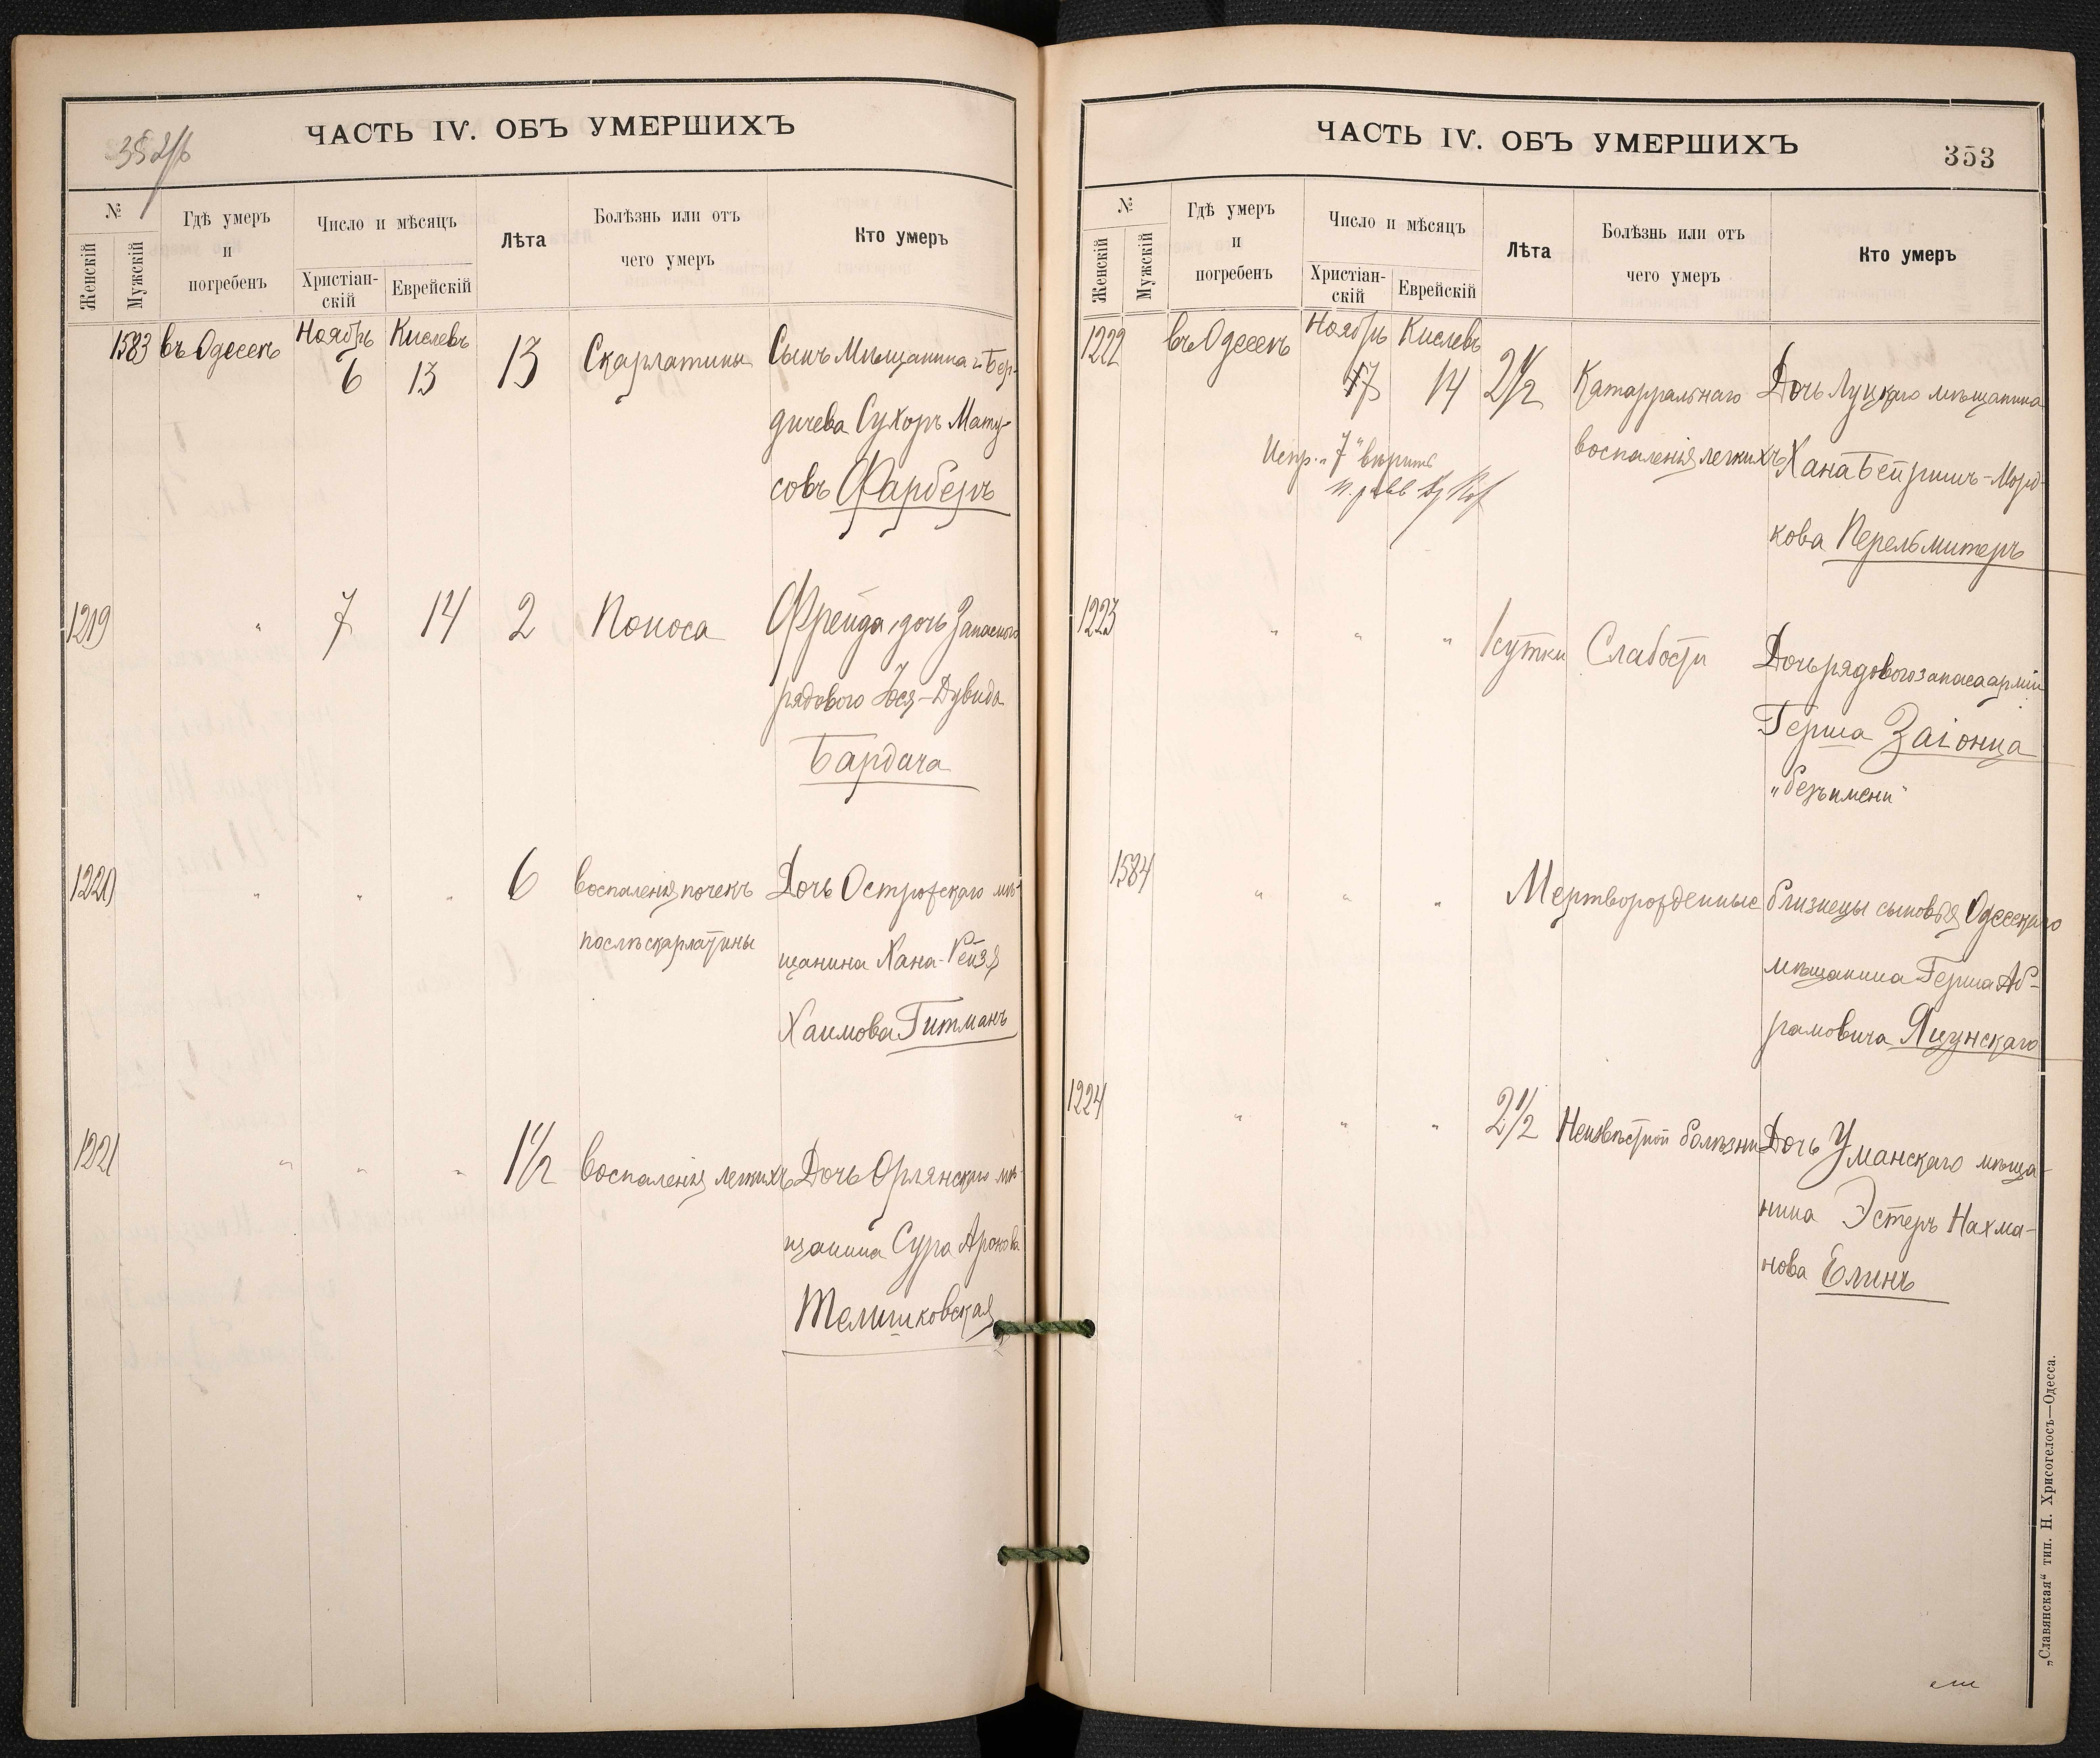 352/б
ЧАСТЬ IV. ОБЪ УМЕРШИХЪ
№
Женскій
Мужскій
Гдѣ умеръ
и
погребенъ
Число и мѣсяцъ
Христіан-
скій
Еврейскій
Лѣта
Болѣзнь или отъ
чего умеръ
Кто умеръ
1583 въ Одессѣ Ноябрь Кислевъ
6 13 13 Скарлатины Сынъ Мѣщанина г. Бер-
дичева Сухоръ Мату-
совъ Фарберъ
1219 " 7 14 2 Поноса Фрейда, дочь Запаснаго
рядового Іося-Дувида
Бардача
1220 " " " 6 воспаленія почекъ Дочь Острожскаго мѣ-
послѣ скарлатины щанина Хана-Рейзя
Хаимова Гитманъ
1221 " " " 1 1/2 воспаленія легкихъ Дочь Орлянскаго мѣ-
щанина Сура Аронова
Телишковская
ЧАСТЬ IV. ОБЪ УМЕРШИХЪ
353
№
Женскій
Мужскій
Гдѣ умеръ
и
погребенъ
Число и мѣсяцъ
Христіан-
скій
Еврейскій
Лѣта
Болѣзнь или отъ
чего умеръ
Кто умеръ
1222 въ Одессѣ Ноябрь Кислевъ
7 14 2 1/2 Катарральнаго Дочь Луцкаго мѣщанина
воспаленія легкихъ Хана Бейришъ-Морд-
Испр. "7" вѣрить
кова Перельмитеръ
1223 " " " 1 сутки Слабости Дочь рядового запаса арміи
Герша Заіонца
"безъ имени"
1584 " " " Мертворожденные близнецы сыновья Одесскаго
мѣщанина Герша Аб-
рамовича Яцунскаго
1224 " " " 2 1/2 Неизвѣстной болѣзни Дочь Уманскаго мѣща-
нина Эстеръ Нахма-
нова Елинъ
„Славянская“ тип. Н. Хрисогелосъ—Одесса.